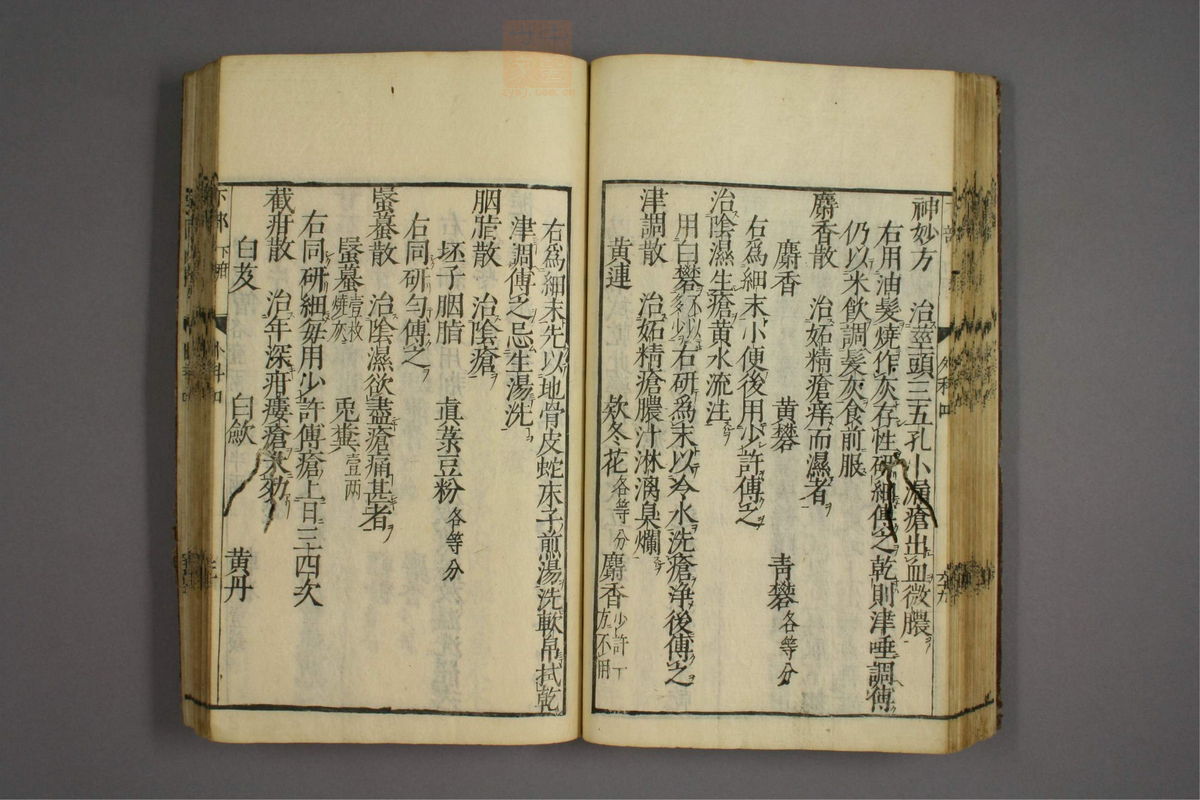 神妙方　治莖頭三五孔小漏瘡出血微膿
右用油髮燒作灰存性研細傅之乾則津唾調傅
仍以米飲調髮灰食前服
麝香散　治妬精瘡痒而濕者
麝香　黃礬　青礬各等分
右爲細末小便後用少許傅之
治陰濕生瘡黃水流注
用白礬不以多少右研爲末以冷水洗瘡淨後傅之
津調散　治妬精瘡膿汁淋漓臭爛
黃連　欵冬花各等分　麝香少許一方不用
右爲細末先以地骨皮蛇床子煎湯洗軟帛拭乾
津調傅之忌生湯洗
胭脂散　治陰瘡
坯子胭脂　眞菉豆粉各等分
右同研勻傅之
蝦蟇散　治陰濕欲盡瘡痛甚者
蝦蟇壹枚燒灰　兎糞壹两
右同研細每用少許傅瘡上日三四次
截疳散　治年深疳瘻瘡
白芨　白歛　黃丹